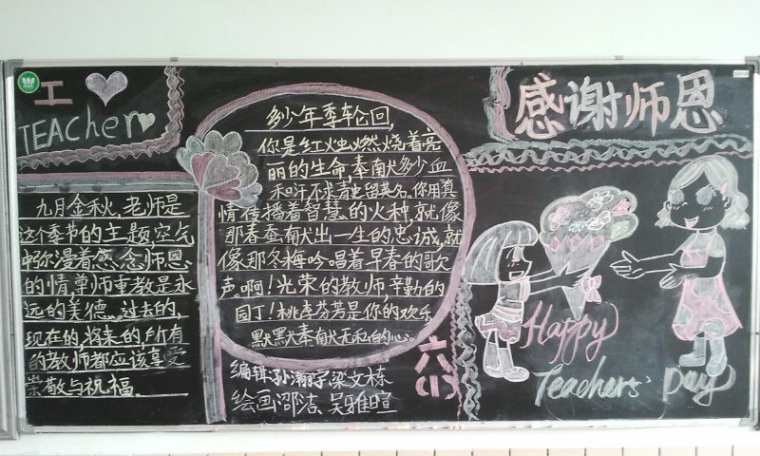 I
TEACHER
九月金秋，老师是
这个季节的主题，空气
中弥漫着感念师恩
的情尊师重教是永
远的美德。过去的，
现在的，将来的，所有
的教师都应该享受
崇敬与祝福。
多少年季轮回，
你是红烛燃烧着亮
丽的生命奉献多少血
和汗不求青史留英名，你用真
情传播着智慧的火种，就像
那春蚕献出一生的忠诚，就
像那冬梅吟唱着早春的歌
声。啊！光荣的教师，辛勤的
园丁！桃李芬芳是你的欢乐
默默奉献无私的心。
编辑：孙瀚宇 梁文栋
绘画：邵洁 吴雅暄
六(1)
感谢师恩
Happy
Teachers' Day